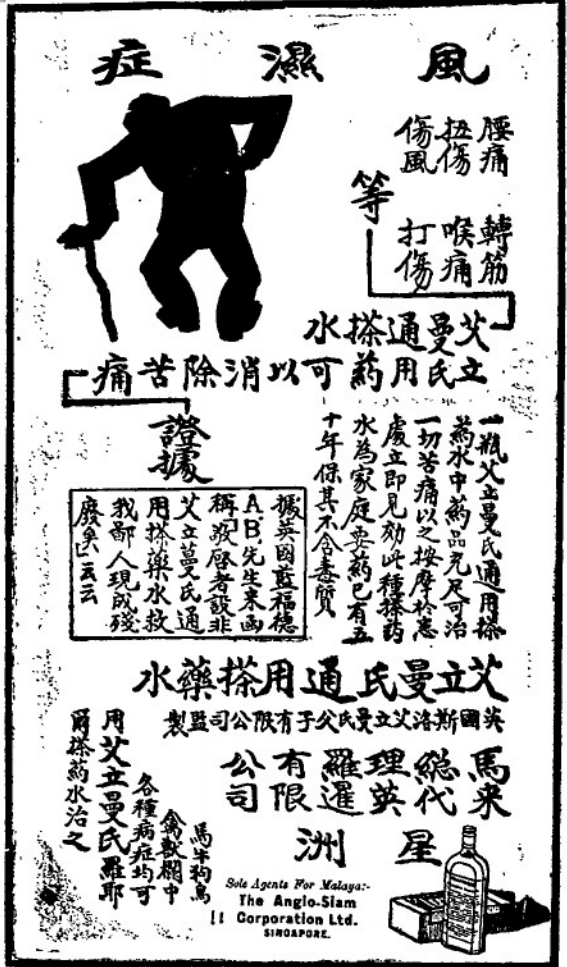 風濕症
腰痛 轉筋
扭傷 喉痛
傷風 打傷
等
艾立曼氏通用搽药水可以消除苦痛
證據
一瓶艾立曼氏通用搽
药水中药品充足可治
一切苦痛以之按摩於患
處立即見効此種搽药
水為家庭要药已有五
十年保其不含毒質
據英國藍福德
A.B.先生来函
稱「敬啓者設非
艾立蔓氏通
用搽藥水救
我鄙人現成殘
廢矣」云云
艾立曼氏通用搽藥水
英國斯洛艾立曼氏父子有限公司監製
馬来總代理英暹羅有限公司
星洲
馬牛狗鳥
禽獸欄中
各種病症均可
用艾立曼氏羅耶
爾搽药水治之
Sole Agents For Malaya:-
The Anglo-Siam
Corporation Ltd.
SINGAPORE.